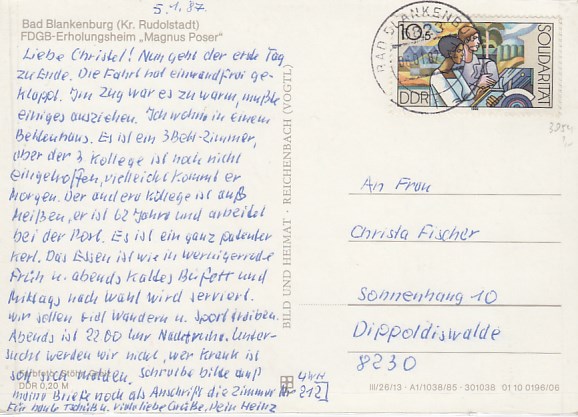 5.1.87
Bad Blankenburg (Kr. Rudolstadt)
FDGB-Erholungsheim „Magnus Poser"
Liebe Christel! Nun geht der erste Tag
zu Ende. Die Fahrt hat einwandfrei ge-
klappt. Im Zug war es zu warm, mußte
einiges ausziehen. Ich wohne in einem
Bettenhaus. Es ist ein 3 Bett-Zimmer,
aber der 3. Kollege ist noch nicht
eingetroffen, vielleicht kommt er
Morgen. Der andere Kollege ist aus
Meißen, er ist 62 Jahre und arbeitet
bei der Post. Es ist ein ganz patenter
Kerl. Das Essen ist wie in Wernigerode
Früh u. abends kaltes Büfett und
Mittags nach Wahl wird serviert.
wir sollen viel wandern u. Sport treiben.
Abends ist 22.00 Uhr Nachtruhe. Unter-
sucht werden wir nicht, wer krank ist
soll sich melden. Schreibe bitte auf
meine Briefe noch als Anschrift die Zimmer Nr 212
Für heute Tschüß u. viele liebe Grüße, Dein Heinz
DDR 0,20 M
BILD UND HEIMAT · REICHENBACH (VOGTL)
BAD BLANKENBURG
10+5
DDR
SOLIDARITÄT
An Frau
Christa Fischer
Sonnenhang 10
Dippoldiswalde
8230
III/26/13 · A1/1038/85 · 301038 01 10 0196/06